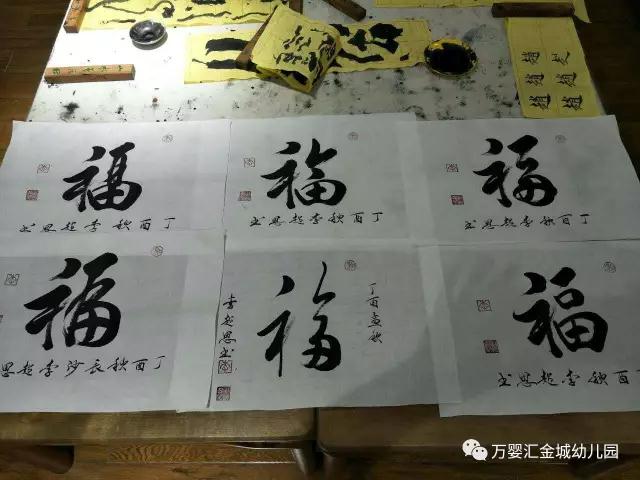 福
丁酉秋李超思书
福
丁酉秋李超思书
福
丁酉秋李超思书
福
丁酉秋长沙李超思
福
丁酉孟秋
李超思书
福
丁酉秋李超思书
万婴汇金城幼儿园